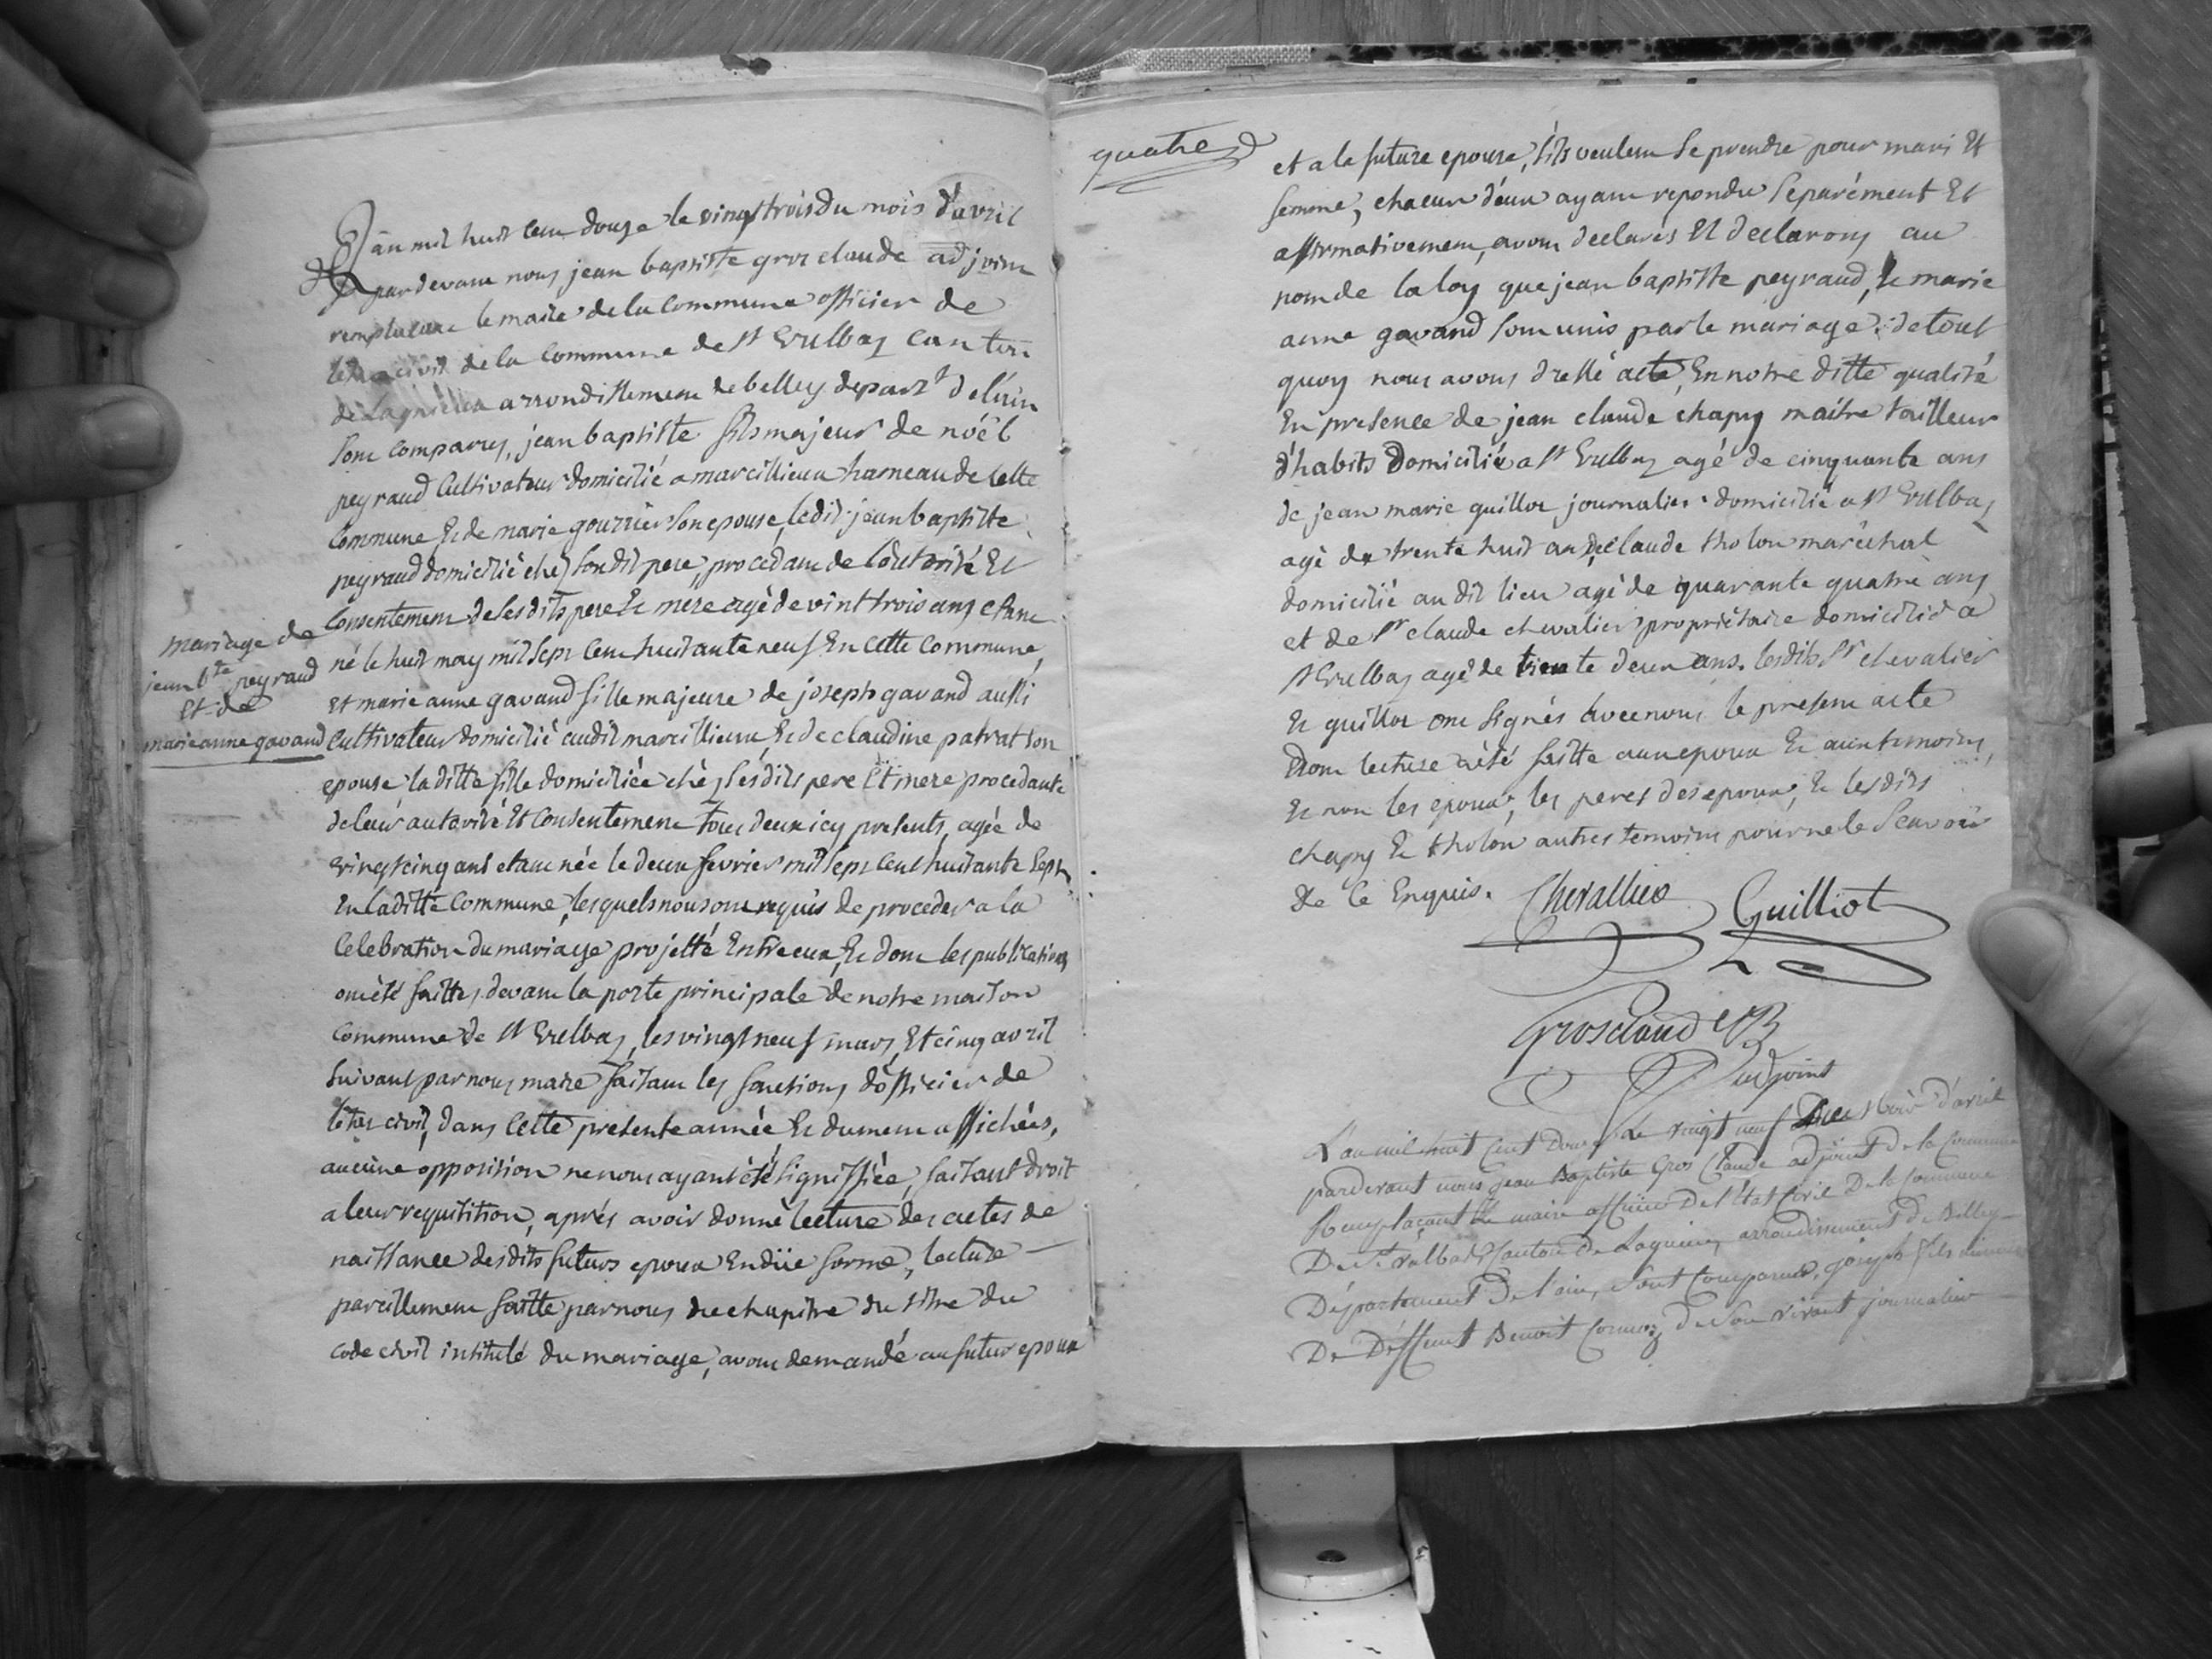 L'an mil huit cent douze le vingt trois du mois d'avril
pardevant nous jean baptiste gros claude adjoint
remplacant le maire de la commune officier de
létat civil de la commune de st Vulbaz canton
de Lagnieux arrondissement de belley depart.t de l'ain
sont comparus, jean baptiste fils majeur de nóël
peyraud cultivateur domicilié a marcillieux hameau de cette
commune Et de marie gourrier son epouse, ledit jean baptiste
peyraud domicilié chéz son dit pere, procedant de l'autorité Et
mariage de
jean b.te peyraud
Et de
marie anne gavand
consentement de sesdits pere Et mere agé de vint trois ans etant
né le huit may mil sept cent huitante neuf En cette commune,
et marie anne gavand fille majeure de joseph gavand aussi
cultivateur domicilié audit marcillieux, Et de claudine patrat son
epouse la ditte fille domiciliée chèz sesdits pere Et mere procedante
de leur autorité Et consentement tous deux icy presents, agée de
vingt cinq ans etant née le deux fevrier mil sept cent huitante sept
En laditte commune, lesquels nous ont requis de proceder a la
celebration du mariage projetté Entre eux, Et dont les publications
ont été faittes devant la porte principale de notre maison
commune de st Vulbaz, les vingt neuf mars, Et cinq avril
suivant par nous maire faisant les fonctions d'officier de
l'état civil, dans cette presente année Et dument affichées,
aucune opposition ne nous ayant été signiffiée, faisant droit
a leur requisition, aprés avoir donné lecture des actes de
naissance desdits futurs epoux En düe forme, lecture
pareillement faitte par nous du chapitre du titre du
code civil intitulé du mariage, avons demandé au futur epoux
quatre
et a la future epouse, s'ils veulent se prendre pour mari Et
femme, chacun d'eux ayant repondu separément Et
affirmativement, avons declarés Et declarons au
nom de la loy que jean baptiste peyraud, Et marie
anne gavand sont unis par le mariage. de tout
quoy nous avons dressé acte, En notre ditte qualité
En presence de jean claude chapuy maître tailleur
d'habits domicilié a st Vulbaz agé de cinquante ans
de jean marie guillot journalier domicilié a st Vulbaz
agé de trente huit ans, de claude tholon maréchal
domicilié au dit lieu agé de quarante quatre ans
et de Sr claude chevalier proprietaire domicilié a
st Vulbaz agé de trente deux ans. lesdits Sr chevalier
Et guillot ont signés avec nous le present acte
Dont lecture a été faitte aux epoux Et aux temoins,
Et non les epoux, les peres des epoux, Et lesdits
chapuy Et tholon autres temoins pour ne le scavoir
de ce Enquis. Chevallier Guilliot
Grosclaude JB
adjoint
L'an mil huit cent douze Le vingt neuf Du Mois d'avril
pardevant nous Jean Baptiste Gros Claude adjoint de la Commune
Remplaçant Le maire officier De l'Etat Civil De la Commune
De St. Vulbas Canton De Lagnieux arrondissement de Belley
Département De l'ain, sont Comparus, joseph fils
De Deffunt Benoit de son vivant journalier